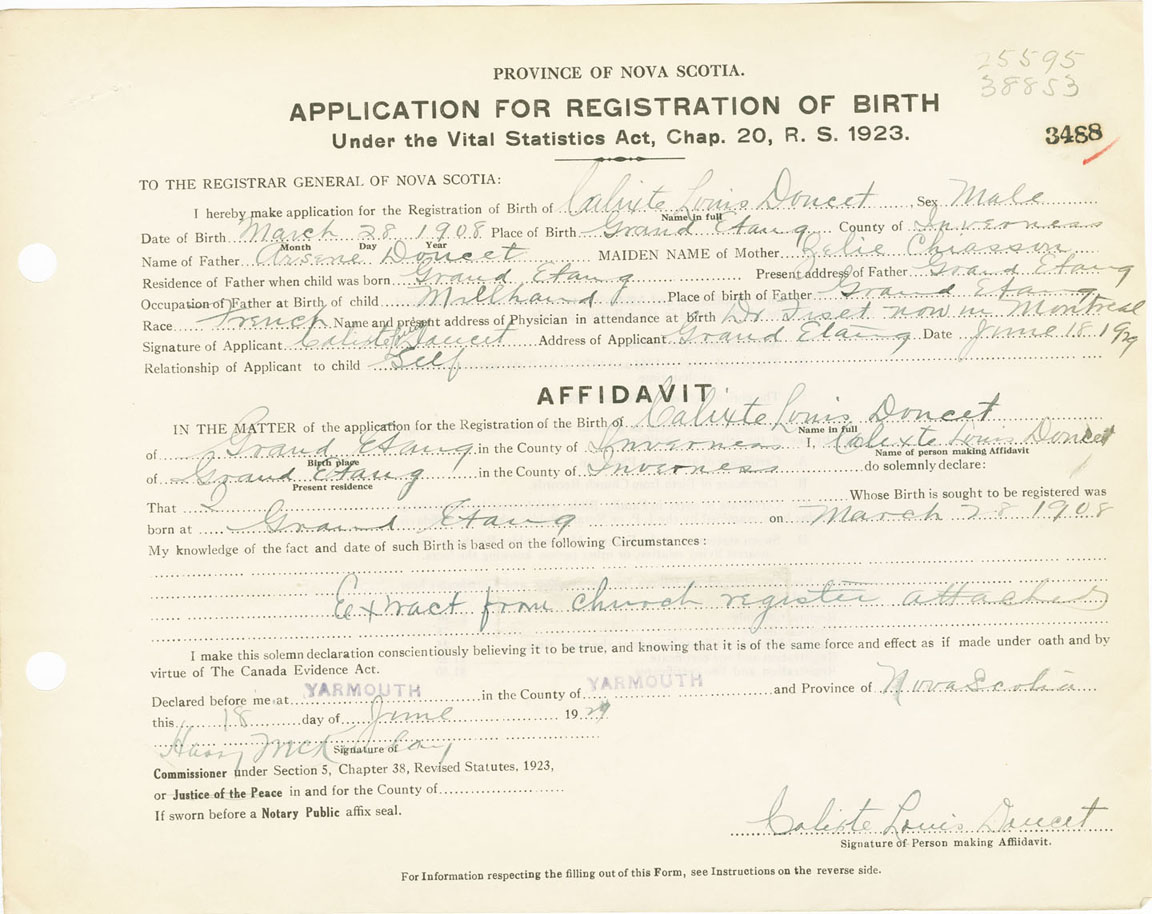 25595
38853
PROVINCE OF NOVA SCOTIA.
APPLICATION FOR REGISTRATION OF BIRTH
Under the Vital Statistics Act, Chap. 20, R. S. 1923.
3488
TO THE REGISTRAR GENERAL OF NOVA SCOTIA:
I hereby make application for the Registration of Birth of Calixte Louis Doucet, Sex Male
Name in full
Date of Birth March 28 1908 Place of Birth Grand Etang County of Inverness
Month Day Year
Name of Father Arsene Doucet MAIDEN NAME of Mother Zelie Chiasson
Residence of Father when child was born Grand Etang Present address of Father Grand Etang
Occupation of Father at Birth of child Millhand Place of birth of Father Grand Etang
Race French Name and present address of Physician in attendance at birth Dr Fiset now in Montreal
Signature of Applicant Caliste Doucet Address of Applicant Grand Etang Date June 18 1929
Relationship of Applicant to child Self
AFFIDAVIT
IN THE MATTER of the application for the Registration of the Birth of Calixte Louis Doucet
Name in full
of Grand Etang in the County of Inverness I, Calixte Louis Doucet
Birth place Name of person making Affidavit
of Grand Etang in the County of Inverness do solemnly declare:
Present residence
That I Whose Birth is sought to be registered was
born at Grand Etang on March 28 1908
My knowledge of the fact and date of such Birth is based on the following Circumstances:
Extract from church register attached
I make this solemn declaration conscientiously believing it to be true, and knowing that it is of the same force and effect as if made under oath and by
virtue of The Canada Evidence Act.
Declared before me at YARMOUTH in the County of YARMOUTH and Province of Nova Scotia
this 18 day of June 1929
Harry McK
Signature of
Commissioner under Section 5, Chapter 38, Revised Statutes, 1923,
or Justice of the Peace in and for the County of
If sworn before a Notary Public affix seal.
Caliste Louis Doucet
Signature of Person making Affidavit.
For Information respecting the filling out of this Form, see Instructions on the reverse side.